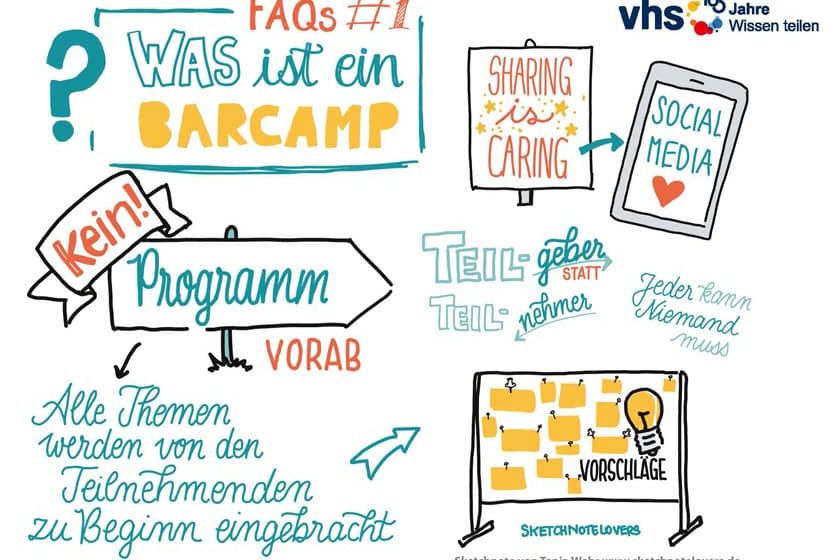 FAQs #1
WAS ist ein
BARCAMP
?
Kein!
Programm
VORAB
Alle Themen
werden von den
Teilnehmenden
zu Beginn eingebracht
vhs
Jahre
Wissen teilen
SHARING
is
CARING
SOCIAL
MEDIA
TEIL-geber
STATT
TEIL-nehmer
Jeder kann
Niemand
muss
VORSCHLÄGE
SKETCHNOTELOVERS